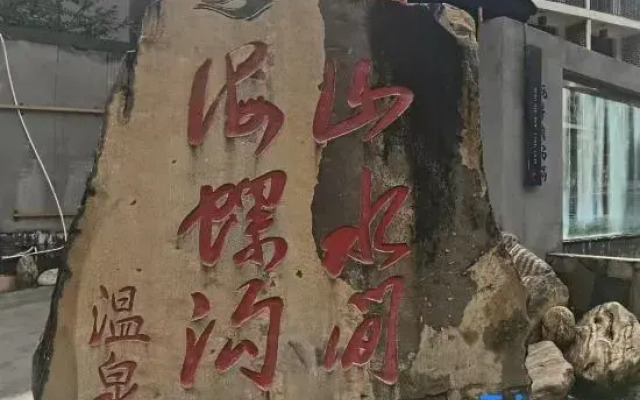 山水间
海螺沟
温泉